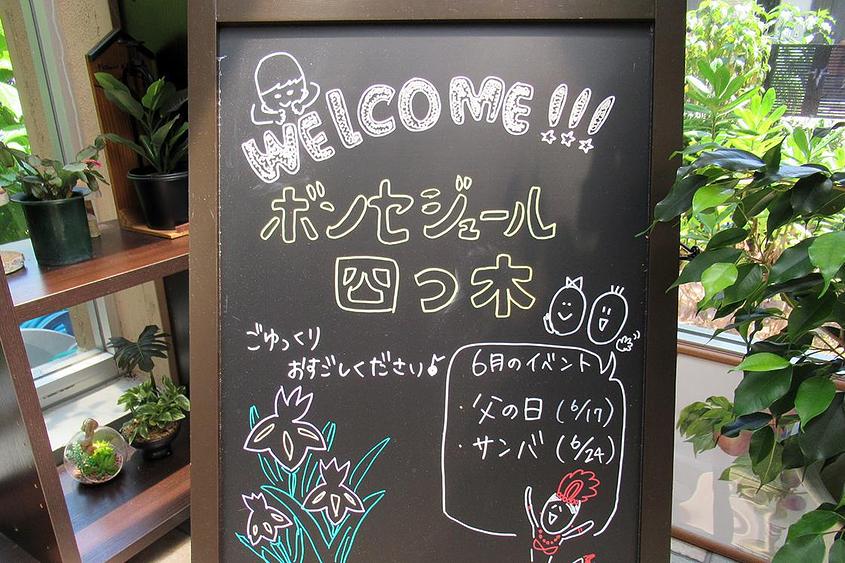 WELCOME!!!
ボンセジュール
四つ木
ごゆっくり
おすごしください♪
6月のイベント
・父の日(6/17)
・サンバ(6/24)